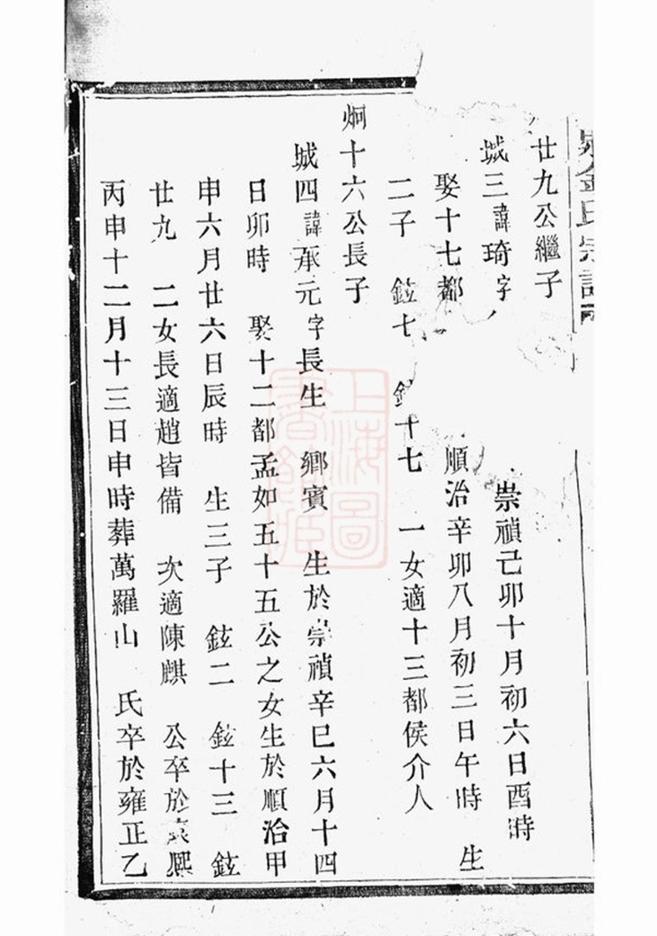 金氏宗譜
廿九公繼子
城三諱琦字 崇禎己卯十月初六日酉時
娶十七都 順治辛卯八月初三日午時 生
二子 鉉七 鉉十七 一女適十三都侯介人
炯十六公長子
城四諱承元字長生 鄉賓 生於崇禎辛巳六月十四
日卯時 娶十二都孟如五十五公之女生於順治甲
申六月廿六日辰時 生三子 鉉二 鉉十三 鉉
廿九 二女長適趙皆備 次適陳麒 公卒於康熙
丙申十二月十三日申時葬萬羅山 氏卒於雍正乙
上海圖書館藏